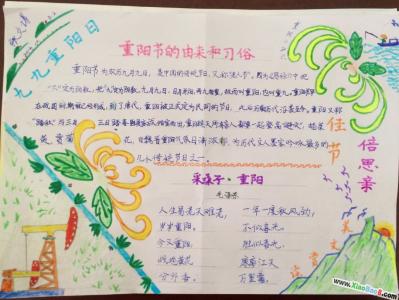 九九重阳日
重阳节的由来和习俗
重阳节为农历九月九日，是中国的传统节日，又称"老人节"。因为《易经》中把
"六"定为阴数，把"九"定为阳数，九月九日，日月并阳，两九相重，故而叫重阳，也叫重九。重阳节早
在战国时期就已经形成，到了唐代，重阳被正式定为民间的节日，此后历朝历代沿袭至今。重阳又称
"踏秋"与三月三日踏春皆是家族倾室而出，重阳这天所有亲人都要一起登高"避灾"，插茱
萸、赏菊花。
几个传统节日之一。
佳节
倍思亲
采桑子·重阳
毛泽东
人生易老天难老，
岁岁重阳。
今又重阳，
战地黄花
分外香。
一年一度秋风劲，
不似春光。
胜似春光，
寥廓江天
万里霜。
www.XiaoBao8.com